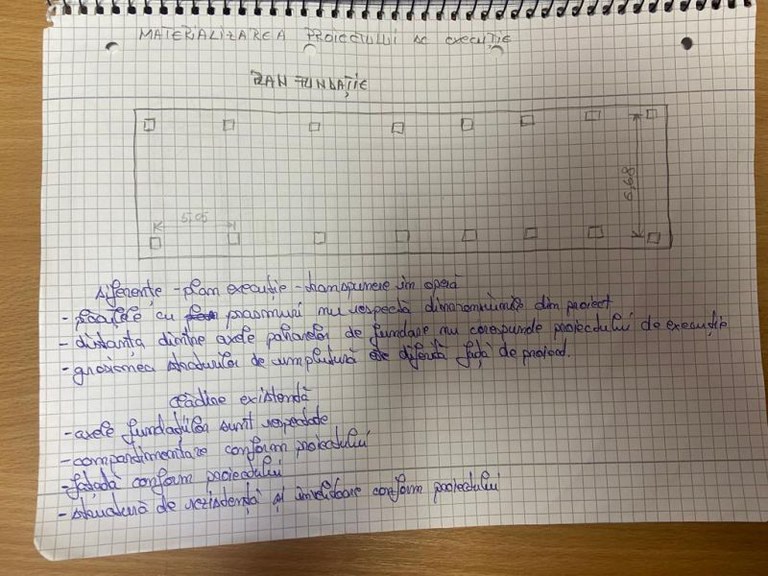 MATERIALIZAREA PROIECTULUI DE EXECUȚIE
PLAN FUNDAȚIE
6,68
5,05
diferențe - plan execuție - transpunere în operă
- cu prasmuri nu respectă din proiect
- distanța dintre axele paharelor de fundare nu corespunde proiectului de execuție
- grosimea straturilor de umplutură diferă față de proiect.
clădire existentă
- axele fundațiilor sunt respectate
- compartimentare conform proiectului
- fațadă conform proiectului
- structură de rezistență și învelitoare conform proiectului